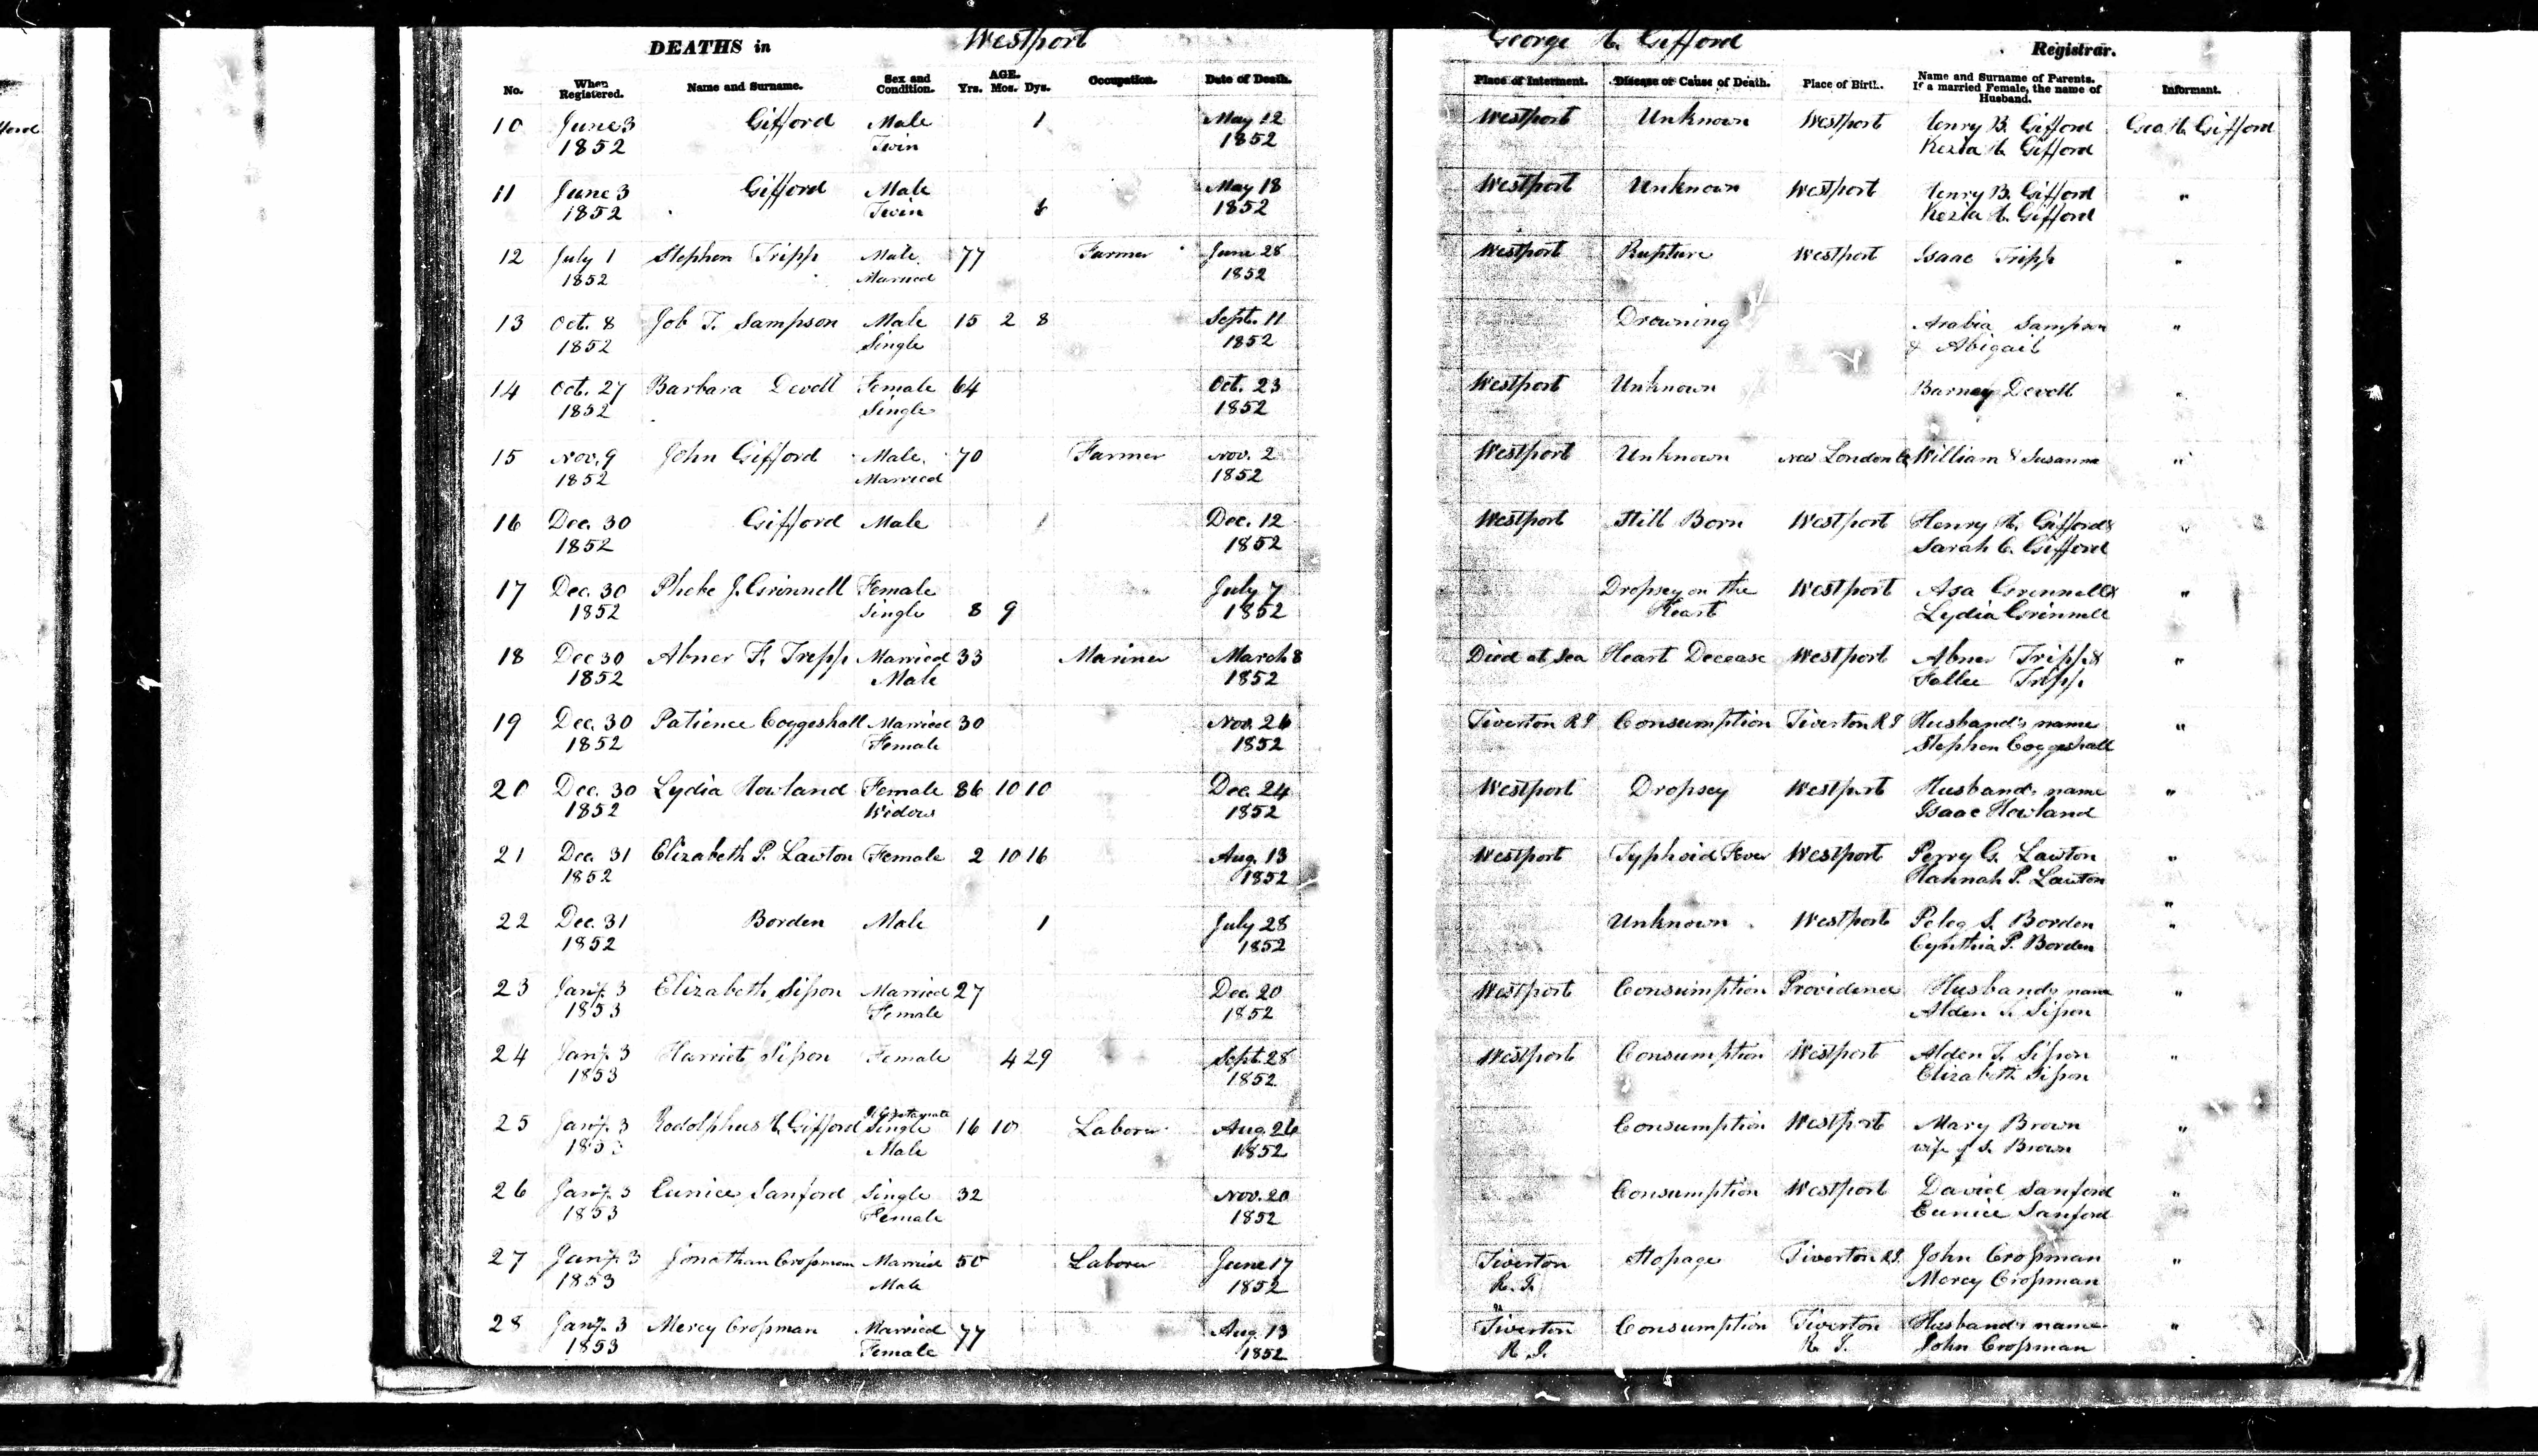 DEATHS in Westport George H. Gifford Registrar.
No. When Registered. Name and Surname. Sex and Condition. AGE. Yrs. Mos. Dys. Occupation. Date of Death. Place of Interment. Disease or Cause of Death. Place of Birth. Name and Surname of Parents. If a married Female, the name of Husband. Informant.
10 June 3 Gifford Male 1 May 12 Westport Unknown Westport Henry B. Gifford Geo. H. Gifford
1852 Twin 1852 Kezia H. Gifford
11 June 3 Gifford Male May 18 Westport Unknown Westport Henry B. Gifford "
1852 Twin 1852 Kezia H. Gifford
12 July 1 Stephen Tripp Male 77 Farmer June 28 Westport Rupture Westport Isaac Tripp "
1852 Married 1852
13 Oct. 8 Job T. Sampson Male 15 2 8 Sept. 11 Drowning Arabia Sampson "
1852 Single 1852 & Abigail
14 Oct. 27 Barbara Devoll Female 64 Oct. 23 Westport Unknown Barney Devoll "
1852 Single 1852
15 Nov. 9 John Gifford Male 70 Farmer Nov. 2 Westport Unknown New London Ct William & Susanna "
1852 Married 1852
16 Dec. 30 Gifford Male Dec. 12 Westport Still Born Westport Henry H. Gifford & "
1852 1852 Sarah C. Gifford
17 Dec. 30 Phebe J. Grinnell Female July 7 Dropsey on the Westport Asa Grinnell & "
1852 Single 8 9 1852 Heart Lydia Grinnell
18 Dec 30 Abner F. Tripp Married 33 Mariner March 8 Died at Sea Heart Decease Westport Abner Tripp & "
1852 Male 1852 Tripp
19 Dec. 30 Patience Coggeshall Married 30 Nov. 26 Tiverton R I Consumption Tiverton R I Husband's name "
1852 Female 1852 Stephen Coggeshall
20 Dec. 30 Lydia Howland Female 86 10 10 Dec. 24 Westport Dropsey Westport Husband's name "
1852 Widow 1852 Isaac Howland
21 Dec. 31 Elizabeth P. Lawton Female 2 10 16 Aug. 13 Westport Typhoid Fever Westport Perry G. Lawton "
1852 1852 Hannah P. Lawton
22 Dec. 31 Borden Male 1 July 28 Unknown Westport Peleg S. Borden "
1852 1852 Cynthia P. Borden
23 Jany. 3 Elizabeth Sisson Married 27 Dec. 20 Westport Consumption Providence Husband's name "
1853 Female 1852 Alden T. Sisson
24 Jany. 3 Harriet Sisson Female 4 29 Sept. 28 Westport Consumption Westport Alden T. Sisson "
1853 1852 Elizabeth Sisson
25 Jany. 3 Rodolphus H. Gifford Single 16 10 Laborer Aug. 26 Consumption Westport Mary Brown "
1853 Male 1852 wife of S. Brown
26 Jany. 3 Eunice Sanford Single 32 Nov. 20 Consumption Westport David Sanford "
1853 Female 1852 Eunice Sanford
27 Jany. 3 Jonathan Crossman Married 50 Laborer June 17 Tiverton Stopage Tiverton R I. John Crossman "
1853 Male 1852 R. I. Mercy Crossman
28 Jany. 3 Mercy Crossman Married 77 Aug. 13 Tiverton Consumption Tiverton Husband's name "
1853 Female 1852 R. I. R. I. John Crossman